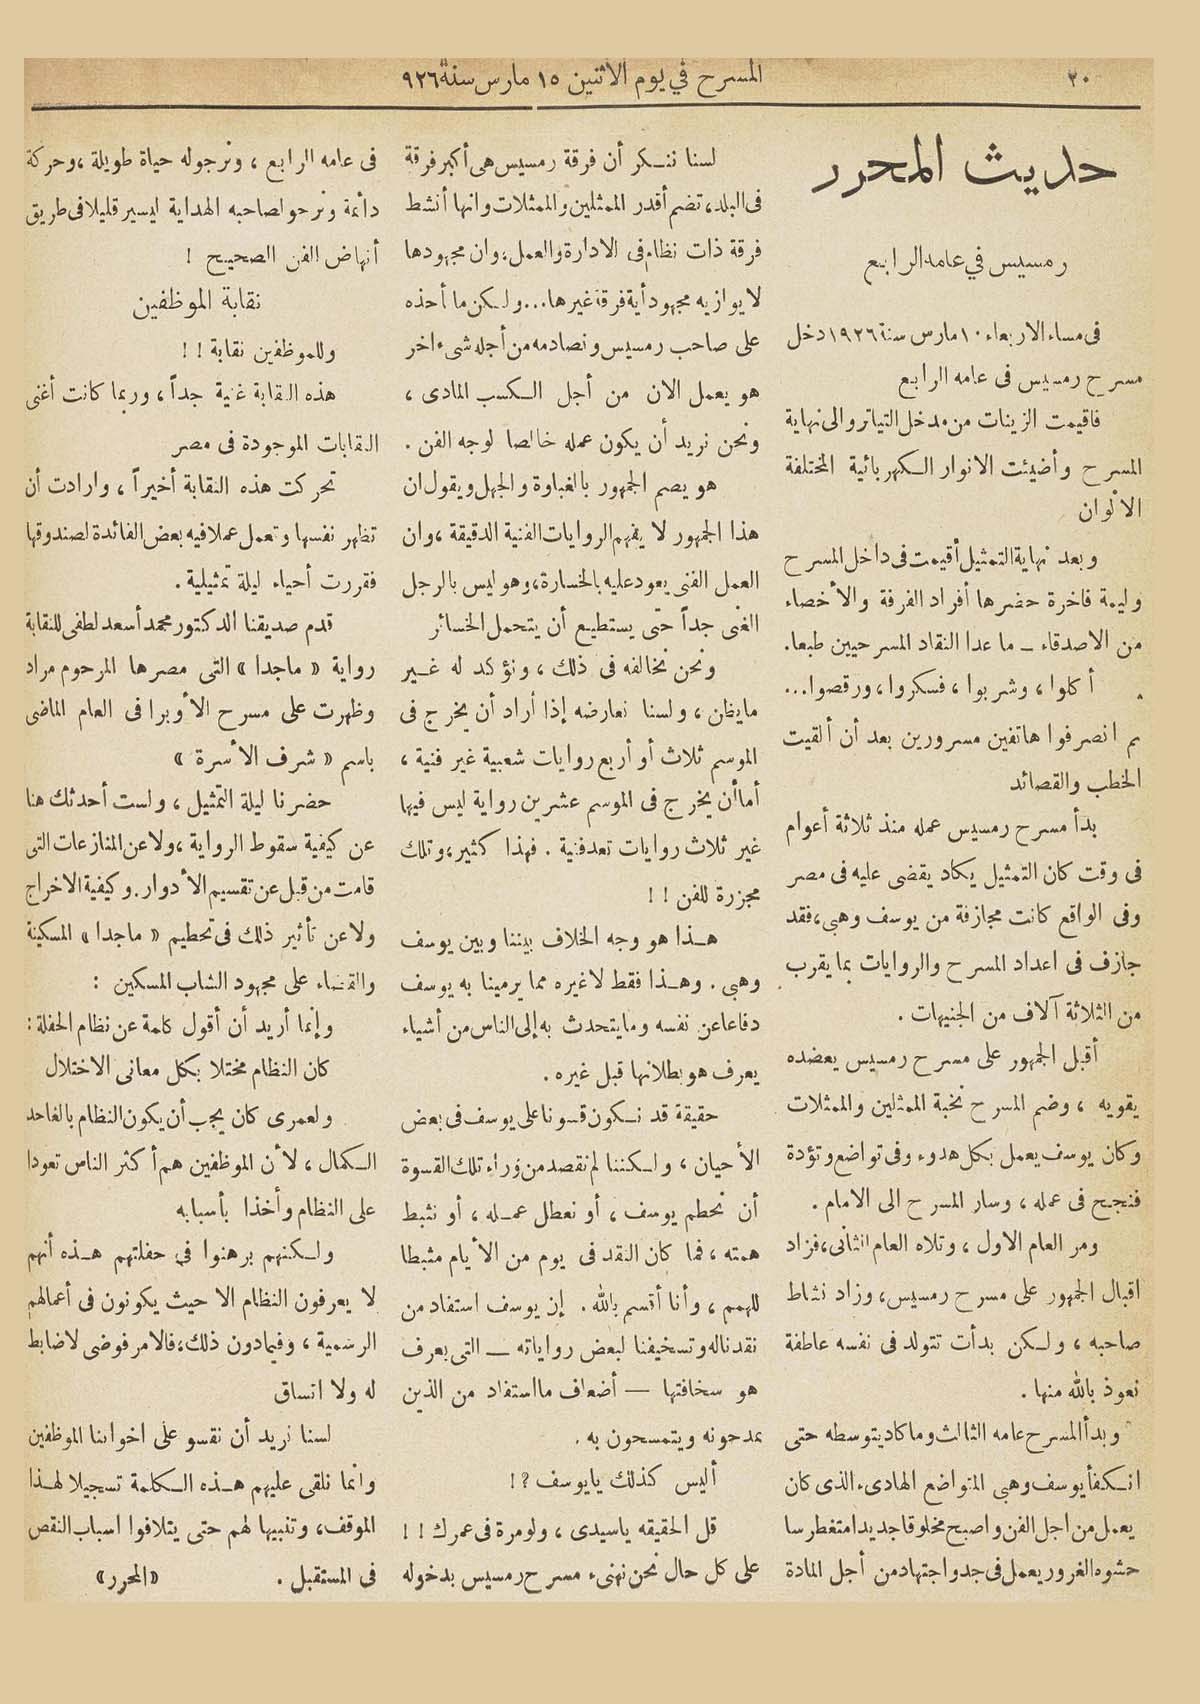 ٢٠
المسرح في يوم الاثنين ١٥ مارس سنة ٩٢٦
حديث المحرر
رمسيس في عامه الرابع
فى مساء الاربعاء ١٠ مارس سنة ١٩٢٦ دخل
مسرح رمسيس فى عامه الرابع
فاقيمت الزينات من مدخل التياترو الى نهاية
المسرح وأضيئت الانوار الكهربائية المختلفة
الالوان
وبعد نهاية التمثيل أقيمت فى داخل المسرح
وليمة فاخرة حضرها أفراد الفرقة والأخصاء
من الاصدقاء — ما عدا النقاد المسرحيين طبعا.
أكلوا ، وشربوا ، فسكروا ، ورقصوا...
م انصرفوا هاتفين مسرورين بعد أن ألقيت
الخطب والقصائد
بدأ مسرح رمسيس عمله منذ ثلاثة أعوام
فى وقت كان التمثيل يكاد يقضى عليه فى مصر
وفى الواقع كانت مجازفة من يوسف وهبى، فقد
جازف فى اعداد المسرح والروايات بما يقرب
من الثلاثة آلاف من الجنيهات .
أقبل الجمهور على مسرح رمسيس يعضده
يقويه ، وضم المسرح نخبة الممثلين والممثلات
وكان يوسف يعمل بكل هدوء وفى تواضع وتؤدة
فنجح فى عمله ، وسار المسرح الى الامام .
ومر العام الاول ، وتلاه العام الثانى، فزاد
اقبال الجمهور على مسرح رمسيس، وزاد نشاط
صاحبه ، ولكن بدأت تتولد فى نفسه عاطفة
نعوذ بالله منها .
وبدأ المسرح عامه الثالث وما كاد يتوسطه حتى
انكفأ يوسف وهبى المتواضع الهادىء الذى كان
يعمل من اجل الفن واصبح مخلوقا جديدا متغطرسا
حشوه الغرور يعمل فى جد واجتهاد من أجل المادة
لسنا ننكر أن فرقة رمسيس هى أكبر فرقة
فى البلد، تضم أقدر الممثلين والممثلات وانها أنشط
فرقة ذات نظام فى الادارة والعمل، وان مجهودها
لا يوازيه مجهود أية فرقة غيرها... ولكن ما أخذه
على صاحب رمسيس ونصادمه من أجله شىء اخر
هو يعمل الان من أجل الكسب المادى ،
ونحن نريد أن يكون عمله خالصا لوجه الفن .
هو يصم الجمهور بالغباوة والجهل ويقول ان
هذا الجمهور لا يفهم الروايات الفنية الدقيقة ، وان
العمل الفنى يعود عليه بالخسارة، وهو ليس بالرجل
الغنى جداً حتى يستطيع أن يتحمل الخسائر
ونحن نخالفه فى ذلك ، ونؤكد له غير
مايظن ، ولسنا نعارضه إذا أراد أن يخرج فى
الموسم ثلاث أو أربع روايات شعبية غير فنية ،
أما أن يخرج فى الموسم عشرين رواية ليس فيها
غير ثلاث روايات تعد فنية . فهذا كثير، وتلك
مجزرة للفن ! !
هذا هو وجه الخلاف بيننا وبين يوسف
وهبى . وهذا فقط لا غيره مما يرمينا به يوسف
دفاعا عن نفسه وما يتحدث به إلى الناس من أشياء
يعرف هو بطلانها قبل غيره .
حقيقة قد نكون قسونا على يوسف فى بعض
الأحيان ، ولكننا لم نقصد من وراء تلك القسوة
أن نحطم يوسف ، أو نعطل عمله ، أو نثبط
همته ، فما كان النقد فى يوم من الأيام مثبطا
للهمم ، وأنا أقسم بالله . إن يوسف استفاد من
نقدناله وتسخيفنا لبعض رواياته — التى يعرف
هو سخافتها — أضعاف ما استفاد من الذين
يمدحونه ويتمسحون به .
أليس كذلك يا يوسف ؟!
قل الحقيقه يا سيدى ، ولو مرة فى عمرك ! !
على كل حال نحن نهنىء مسرح رمسيس بدخوله
فى عامه الرابع ، ونرجو له حياة طويلة ، وحركة
دائمة ونرجو لصاحبه الهداية ليسير قليلا فى طريق
أنهاض الفن الصحيح !
نقابة الموظفين
وللموظفين نقابة ! !
هذه النقابة غنية جداً ، وربما كانت أغنى
النقابات الموجودة فى مصر
تحركت هذه النقابة أخيراً ، وارادت أن
تظهر نفسها وتعمل عملا فيه بعض الفائدة لصندوقها
فقررت أحياء ليلة تمثيلية .
قدم صديقنا الدكتور محمد أسعد لطفى للنقابة
رواية « ماجدا » التى مصرها المرحوم مراد
وظهرت على مسرح الأوبرا فى العام الماضى
باسم « شرف الأسرة »
حضرنا ليلة التمثيل ، ولست أحدثك هنا
عن كيفية سقوط الرواية ، ولا عن المنازعات التى
قامت من قبل عن تقسيم الأدوار. وكيفية الاخراج
ولا عن تأثير ذلك فى تحطيم « ماجدا » المسكينة
والقضاء على مجهود الشاب المسكين :
وإنما أريد أن أقول كلمة عن نظام الحفلة :
كان النظام مختلا بكل معانى الاختلال
ولعمرى كان يجب أن يكون النظام بالغا حد
الكمال ، لأن الموظفين هم أكثر الناس تعودا
على النظام وأخذا بأسبابه
ولكنهم برهنوا في حفلتهم هذه أنهم
لا يعرفون النظام الا حيث يكونون فى أعمالهم
الرسمية ، وفيما دون ذلك، فالامر فوضى لا ضابط
له ولا اتساق
لسنا نريد أن نقسو على اخواننا الموظفين
وانما نلقى عليهم هذه الكلمة تسجيلا لهذا
الموقف، وتنبيها لهم حتى يتلافوا اسباب النقص
فى المستقبل . «المحرر»